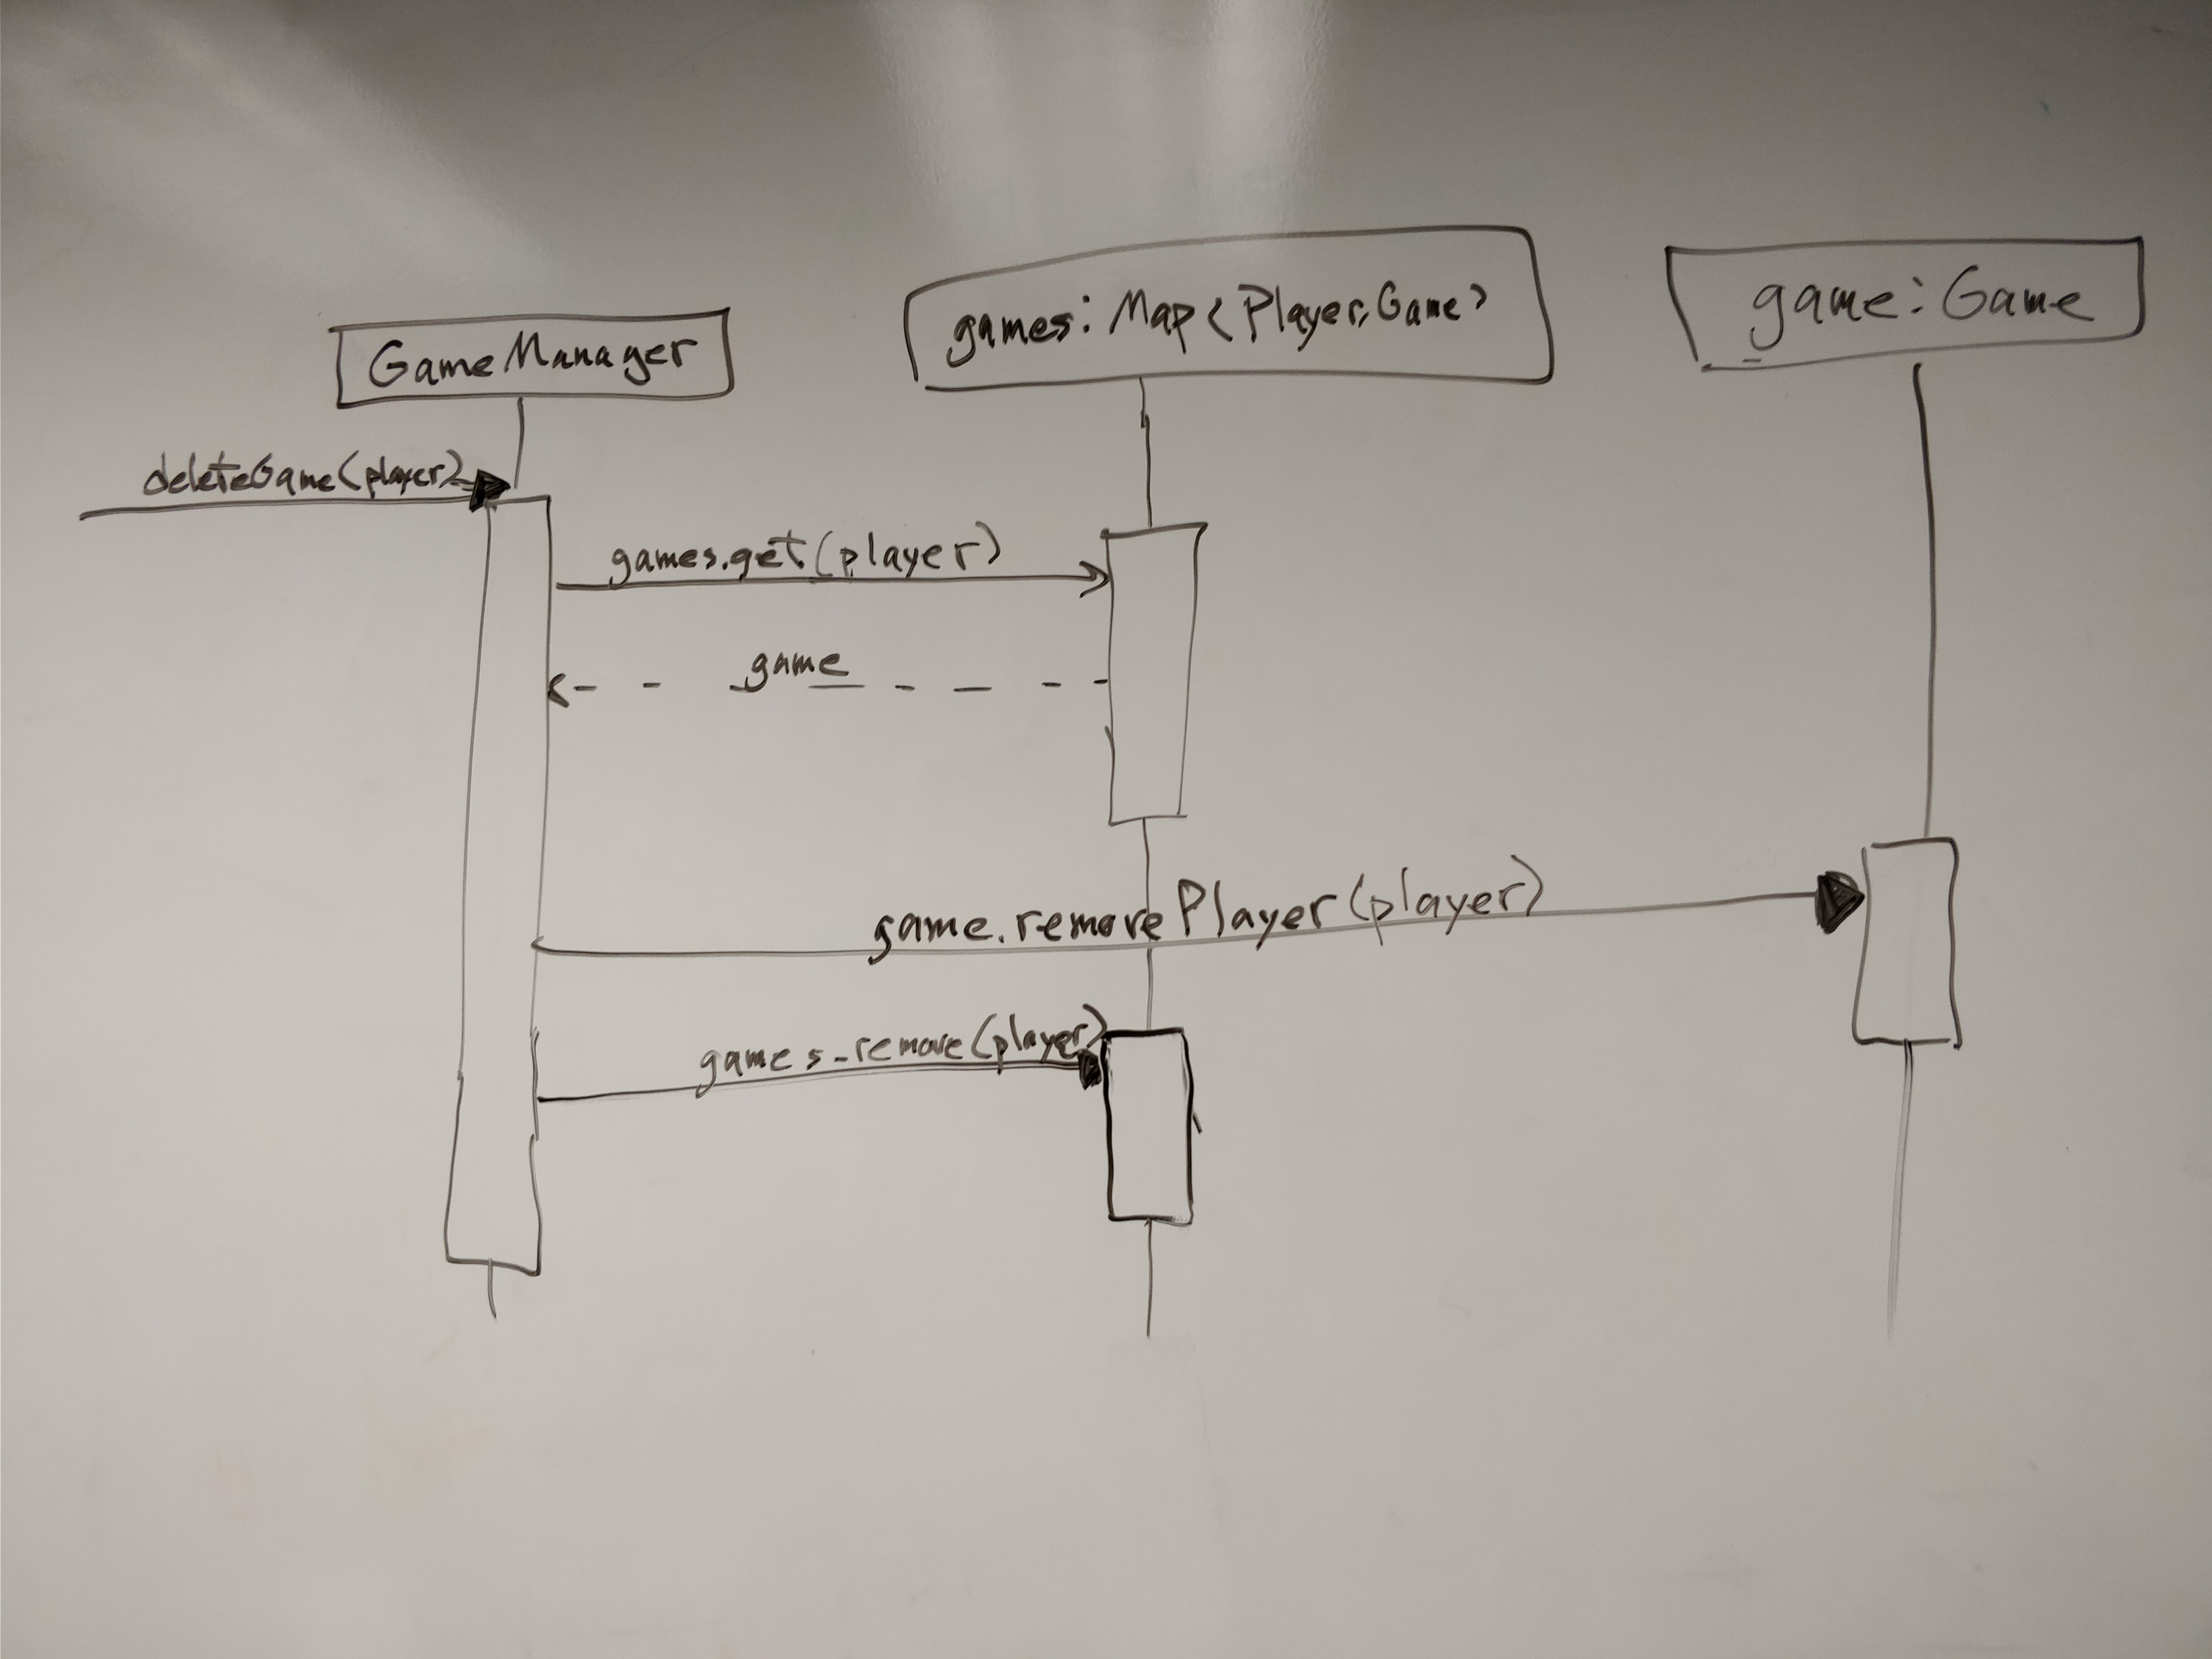 GameManager
games: Map<Player,Game>
game: Game
deleteGame(player)
games.get(player)
game
game.removePlayer(player)
games.remove(player)